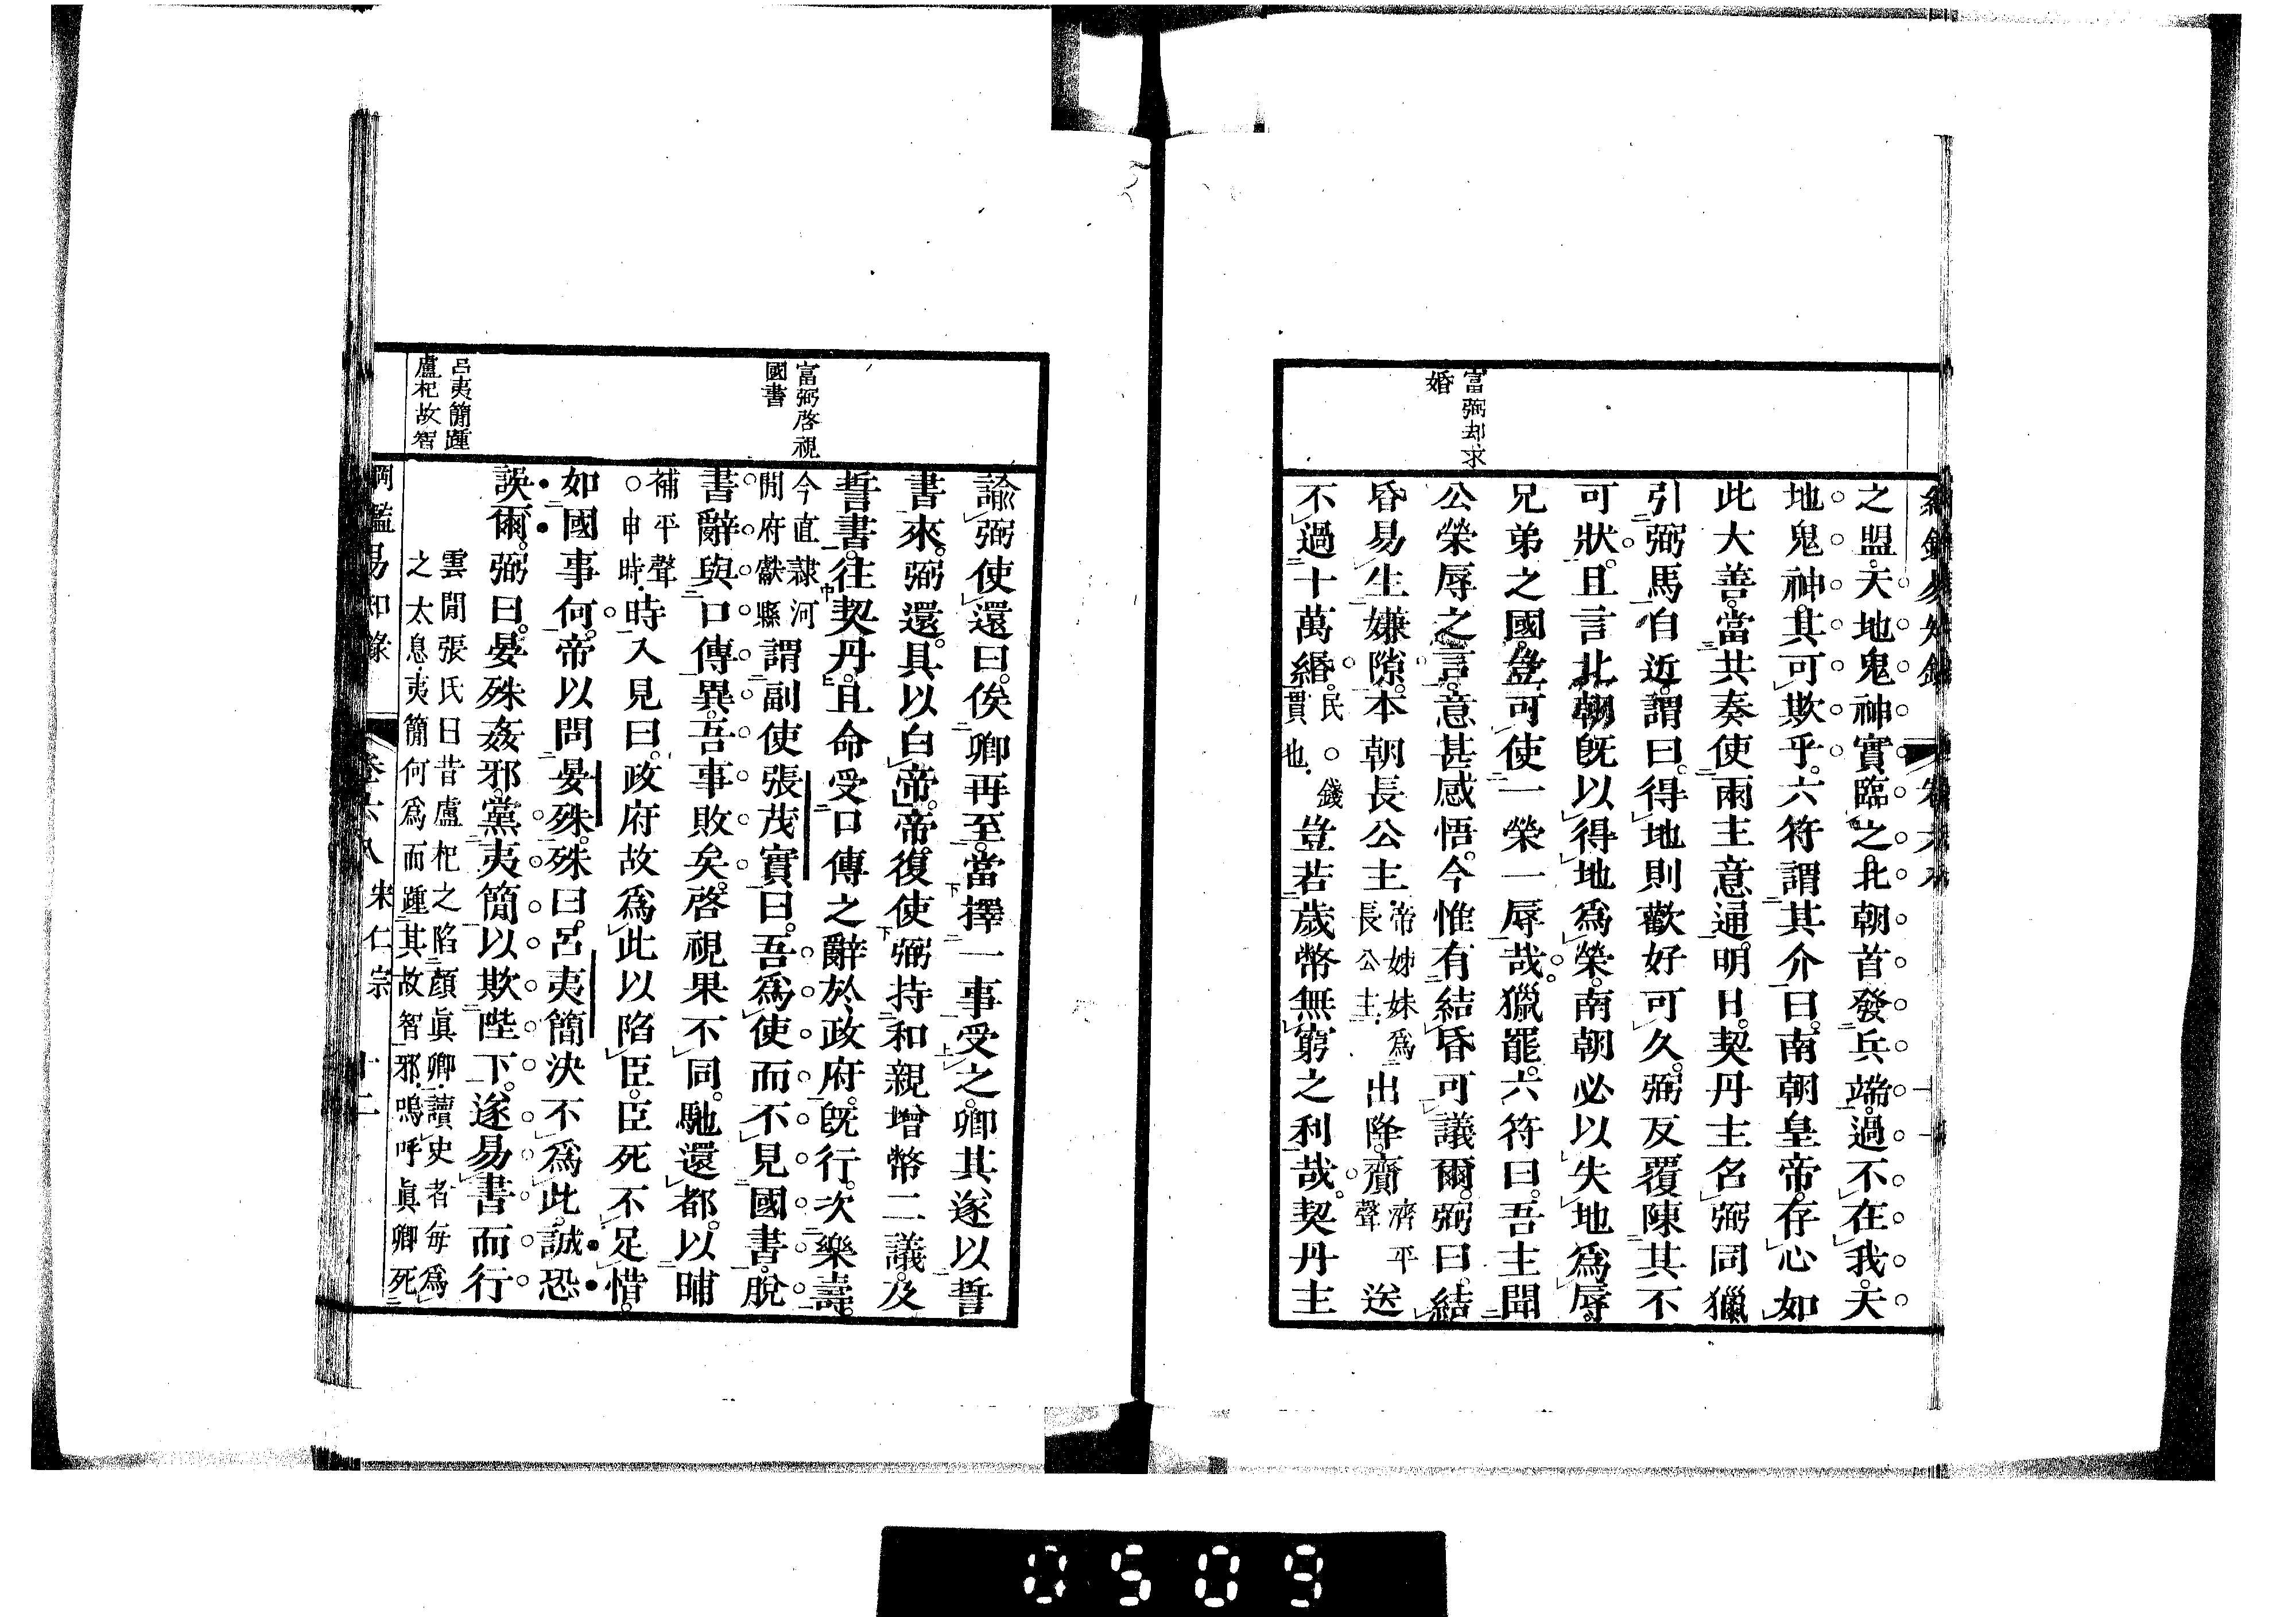 富弼却求
婚
之盟。天地鬼神實臨之。北朝首發兵端。過不在我。天
地鬼神。其可欺乎。六符謂其介曰。南朝皇帝。存心如
此大善。當共奏使兩主意通。明日。契丹主名弼同獵
引弼馬自近。謂曰。得地則歡好可久。弼反覆陳其不
可狀。且言北朝旣以得地爲榮。南朝必以失地爲辱。
兄弟之國。豈可使一榮一辱哉。獵罷。六符曰。吾主聞
公榮辱之言。意甚感悟。今惟有結昏可議爾。弼曰。結
昏易生嫌隙。本朝長公主帝姊妹爲
長公主。出降。齎濟平
聲送
不過十萬緡。民○錢
貫也。豈若歲幣無窮之利哉。契丹主
富弼啓視
國書
呂夷簡踵
盧杞故智
諭弼使還曰。俟卿再至。當擇一事受之。卿其遂以誓
書來。弼還。具以白帝。帝復使弼持和親增幣二議。及
誓書。往契丹。且命受口傳之辭於政府。旣行。次樂壽。
今直隷河
閒府獻縣謂副使張茂實曰。吾爲使而不見國書。脫
書辭與口傳異。吾事敗矣。啓視果不同。馳還都。以晡
補平聲
○申時。時入見曰。政府故爲此以陷臣。臣死不足惜。
如國事何。帝以問晏殊。殊曰。呂夷簡決不爲此。誠恐
誤爾。弼曰。晏殊姦邪。黨夷簡以欺陛下。遂易書而行
雲閒張氏曰昔盧杞之陷顏眞卿。讀史者每爲
之太息。夷簡何爲而踵其故智邪。嗚呼眞卿死
綱鑑易知錄 卷六八 宋仁宗 十二
0509